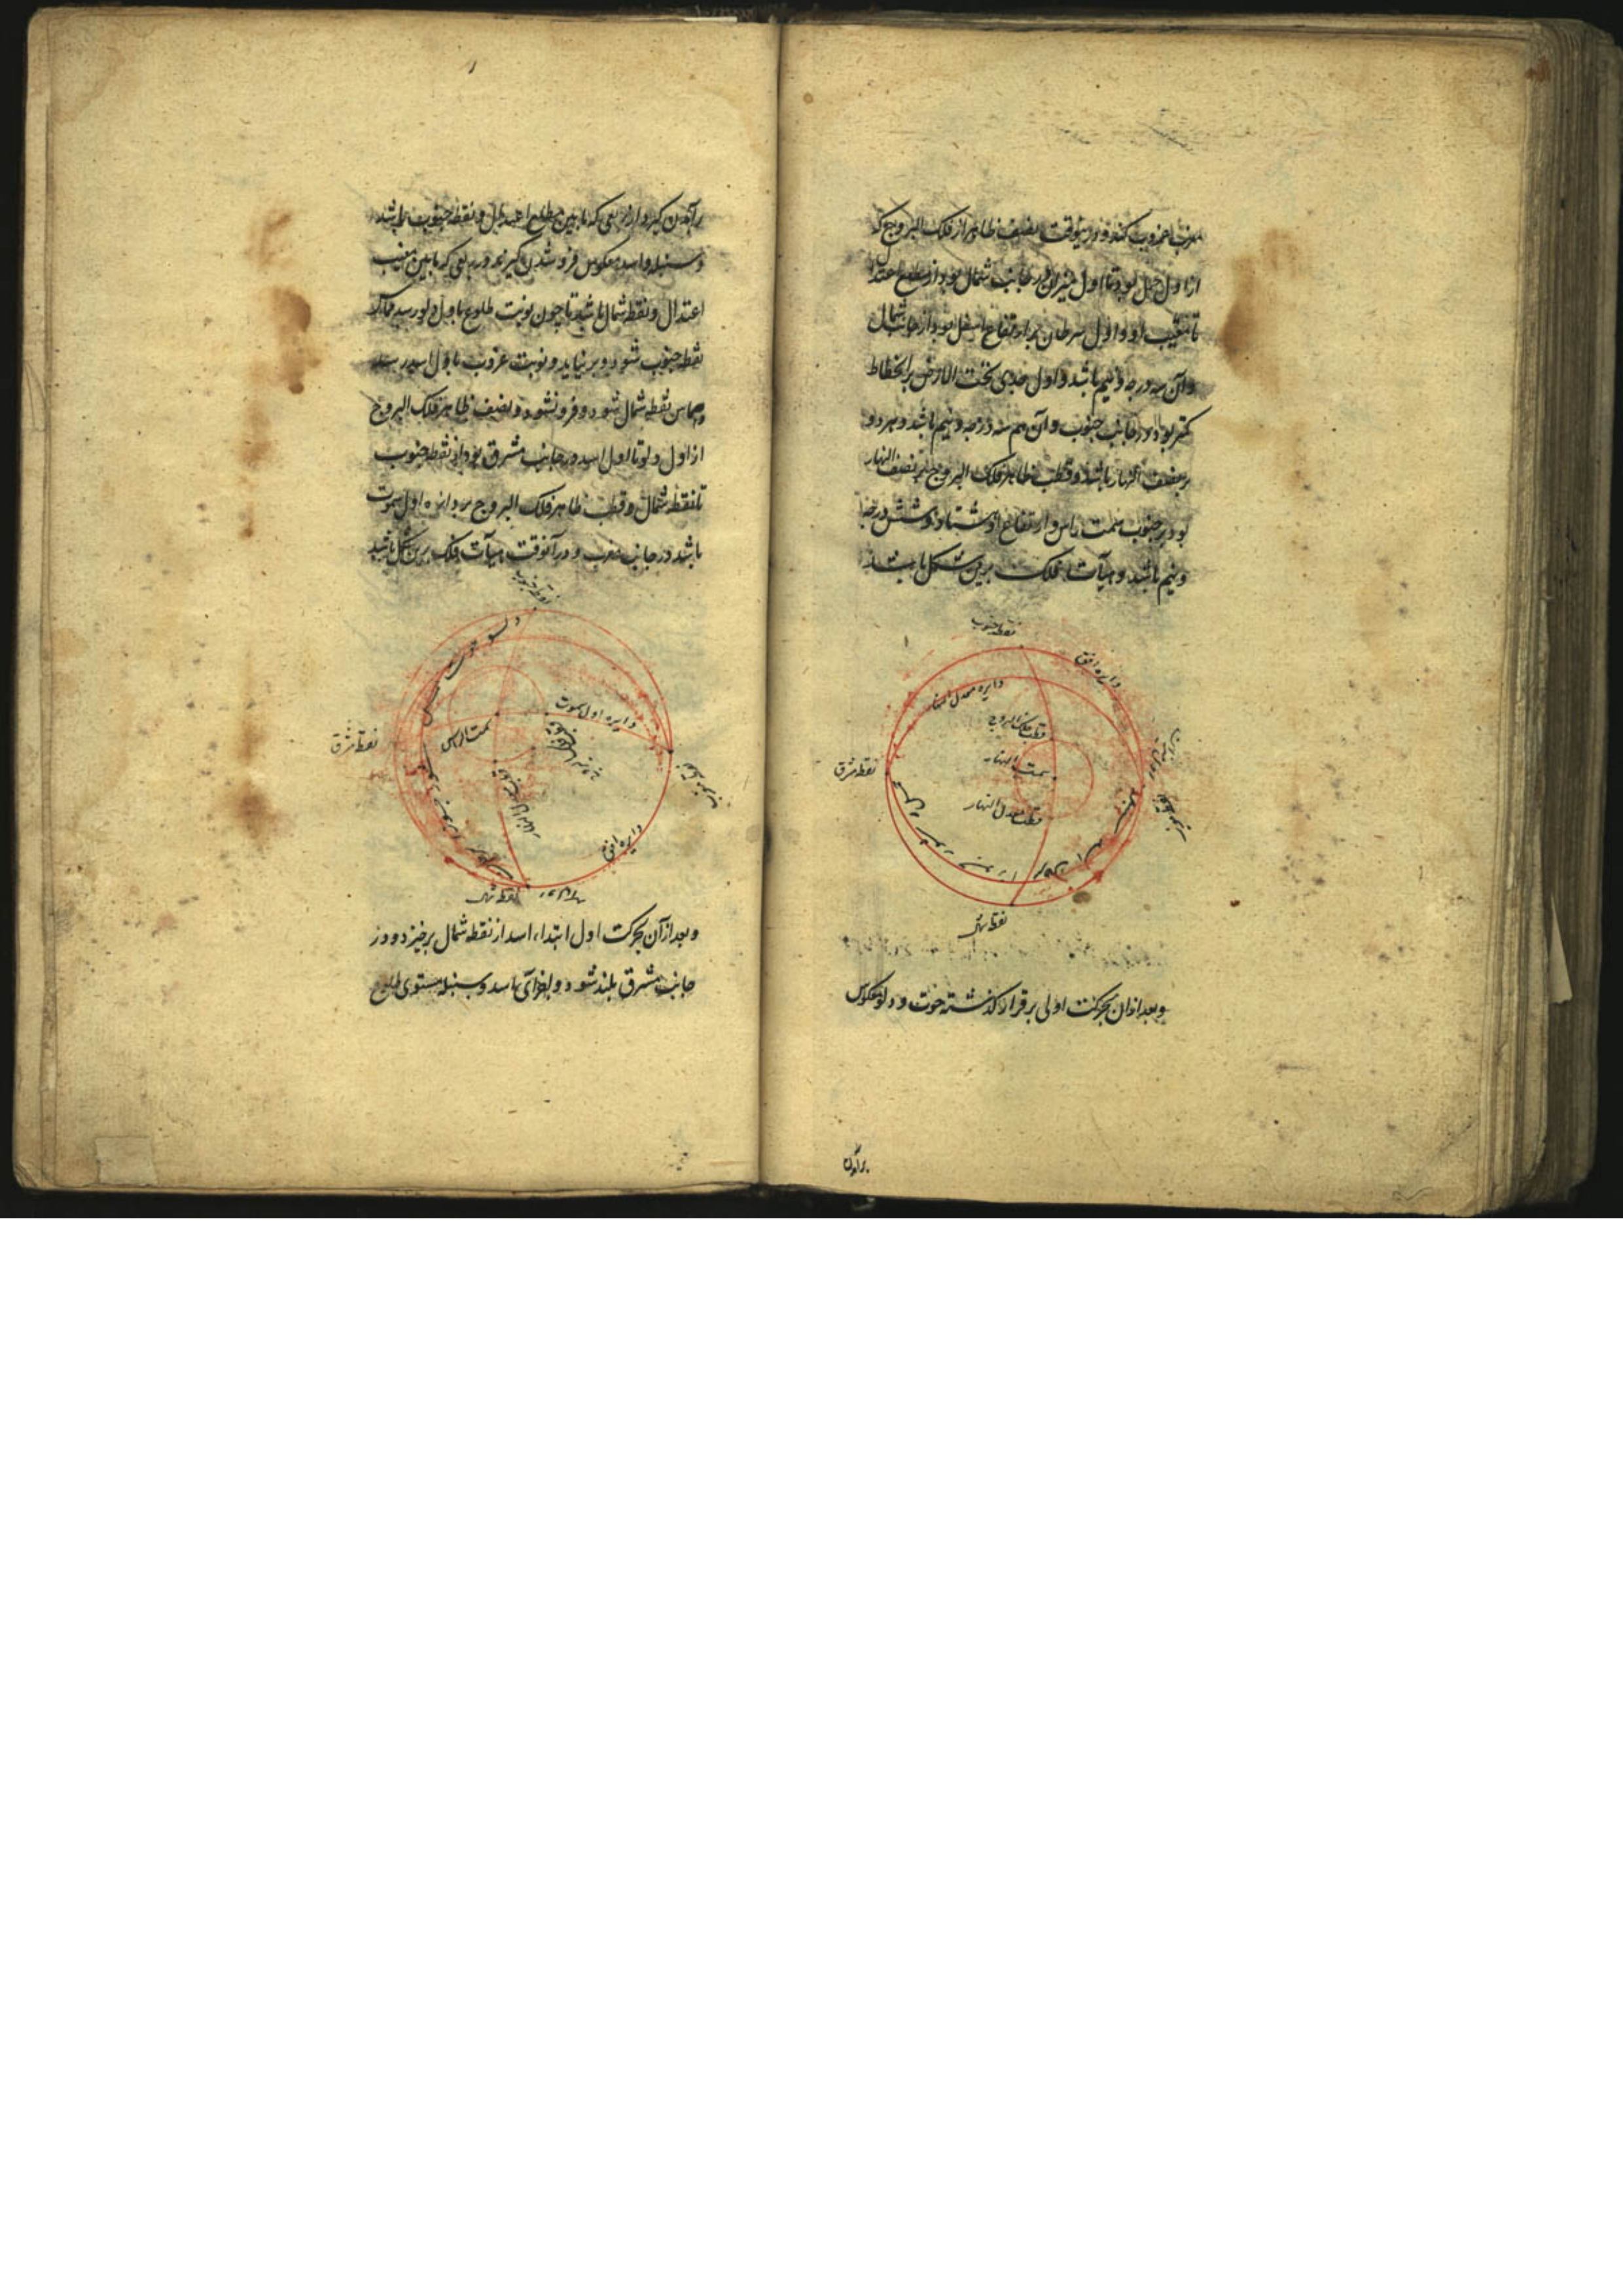 مغرب غروب کند و درینوقت نصف ظاهر از فلک البروج که
از اول حمل بود تا اول میزان در جانب شمال بود از مطلع اعتدال
تا مغیب او و اول سرطان بر ارتفاع اسفل بود از جانب شمال
و آن سه درجه و نیم باشد و اول جدی تحت الارض بر انحطاط
کمتر بود در جانب جنوب و آن هم سه درجه و نیم باشد و هر دو
بر نصف النهار باشد و قطب ظاهر فلک البروج هم نصف النهار
بود بر جنوب سمت راس و ارتفاع او هشتاد و شش درجه
و نیم باشد و هیآت فلک برین شکل باشد
نقطه جنوب
دایره افق
دایره معدل النهار
قطب فلک البروج
سمت
نقطه مشرق
قطب معدل النهار
نقطه شمال
و بعد از آن بحرکت اولی بر قرار گذشته حوت و دلو معکوس
برآمدن
برآمدن گیرد از ربعی که ما بین مطلع اعتدال و نقطه جنوب باشد
و سنبله و اسد معکوس فرو شدن گیرند در ربعی که ما بین مغیب
اعتدال و نقطه شمال باشد تا چون نوبت طلوع باول دلو رسد مماس
نقطه جنوب شود و بر نیاید و نوبت غروب باول اسد رسد
و مماس نقطه شمال شود و فرو نشود و نصف ظاهر فلک البروج
از اول دلو تا اول اسد در جانب مشرق بود از نقطه جنوب
تا نقطه شمال و قطب ظاهر فلک البروج بر دایره اول سموت
باشد در جانب مغرب و در آنوقت هیآت فلک برین شکل باشد
نقطه جنوب
دلو حوت حمل
دایره اول سموت
سمت الراس
نقطه مشرق
دایره افق
نقطه شمال
و بعد از آن بحرکت اول ابتداء اسد از نقطه شمال برخیزد و در
جانب مشرق بلند شود و باجزای اسد و سنبله مستوی طلوع